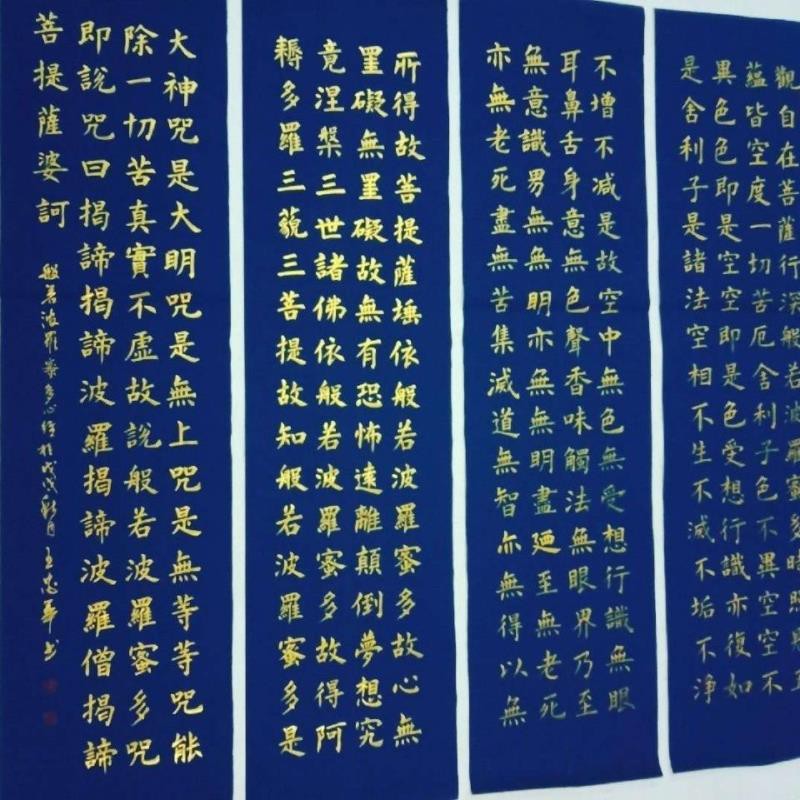 觀自在菩薩行深般若波羅蜜多時照見五
蘊皆空度一切苦厄舍利子色不異空空不
異色色即是空空即是色受想行識亦復如
是舍利子是諸法空相不生不滅不垢不淨
不增不減是故空中無色無受想行識無眼
耳鼻舌身意無色聲香味觸法無眼界乃至
無意識界無無明亦無無明盡廼至無老死
亦無老死盡無苦集滅道無智亦無得以無
所得故菩提薩埵依般若波羅蜜多故心無
罣礙無罣礙故無有恐怖遠離顛倒夢想究
竟涅槃三世諸佛依般若波羅蜜多故得阿
耨多羅三藐三菩提故知般若波羅蜜多是
大神咒是大明咒是無上咒是無等等咒能
除一切苦真實不虛故說般若波羅蜜多咒
即說咒曰揭諦揭諦波羅揭諦波羅僧揭諦
菩提薩婆訶
般若波羅蜜多心經於戊戌秋月王忠華书